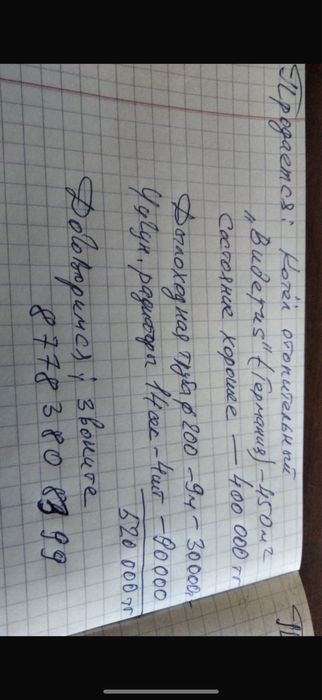 Продается: Котёл отопительный
"Видерис" (Германия) - 450 м2
состояние хорошее — 400 000 тг
Дымоходная труба ф 200 - 9м - 30000тг
Чугун. радиаторы 14сек - 4шт - 90000
520 000 тг
Договоримся; звоните
8 778 380 8399